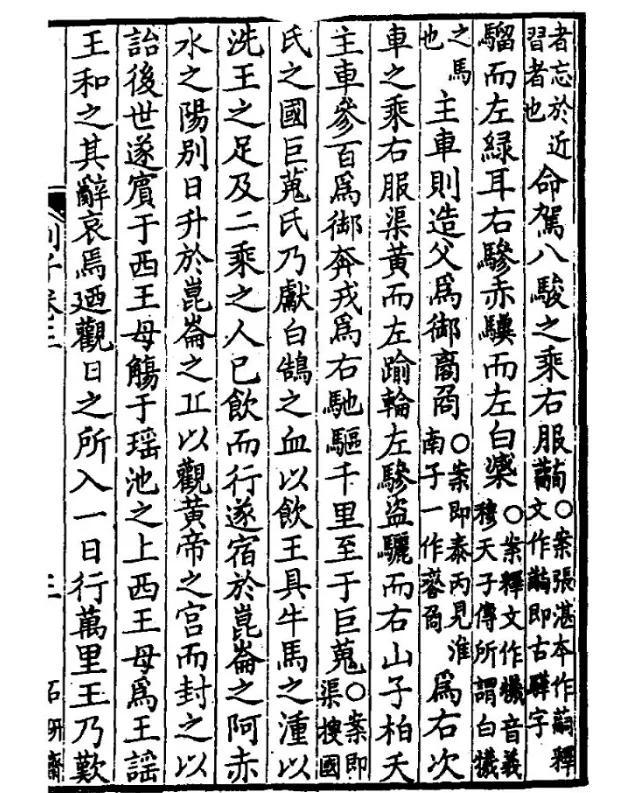 者忘於近
習者也
命駕八駿之乘右服
○案張湛本作釋
文作即古驊字
騮而左綠耳右驂赤驥而左白
○案釋文作音義
穆天子傳所謂白
之馬
也
主車則造父爲御
○案即泰丙見淮
南子一作
爲右次
車之乘右服渠黃而左踰輪左驂盜驪而右山子柏夭
主車參百爲御奔戎爲右馳驅千里至于巨蒐
○案即
渠搜國
氏之國巨蒐氏乃獻白鵠之血以飲王具牛馬之湩以
洗王之足及二乘之人已飲而行遂宿於崑崙之阿赤
水之陽別日升於崑崙之丘以觀黃帝之宮而封之以
詒後世遂賓于西王母觴于瑤池之上西王母爲王謠
王和之其辭哀焉迺觀日之所入一日行萬里王乃歎